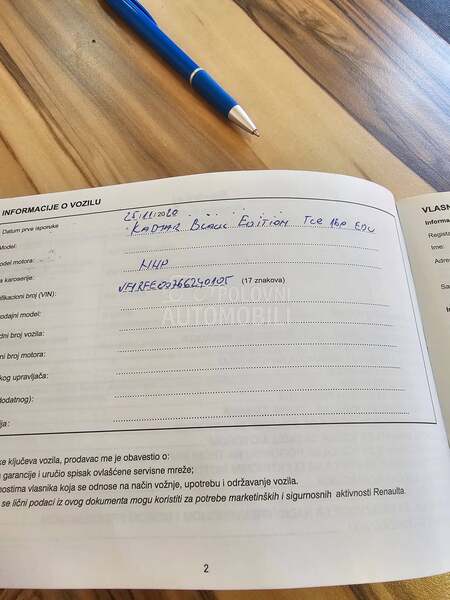 INFORMACIJE O VOZILU
VLASN
Datum prve isporuke 25/11/2020
Model: KADJAR BLACK EDITION TCe 160 EDC
odel motora:
a karoserije: HHP
ifikacioni broj (VIN): (17 znakova)
POLOVNI
AUTOMOBILI
odajni model:
dni broj vozila:
ni broj motora:
kog upravljača:
dodatnog):
ija:
Informa
Regista
Ime:
Adresa:
ke ključeva vozila, prodavac me je obavestio o:
garancije i uručio spisak ovlašćene servisne mreže;
nostima vlasnika koja se odnose na način vožnje, upotrebu i održavanje vozila.
se lični podaci iz ovog dokumenta mogu koristiti za potrebe marketinških i sigurnosnih aktivnosti Renaulta.
2